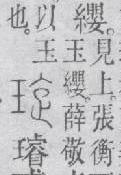 纓。見上。張衡
以玉纓。薛敬
也。玉
璿